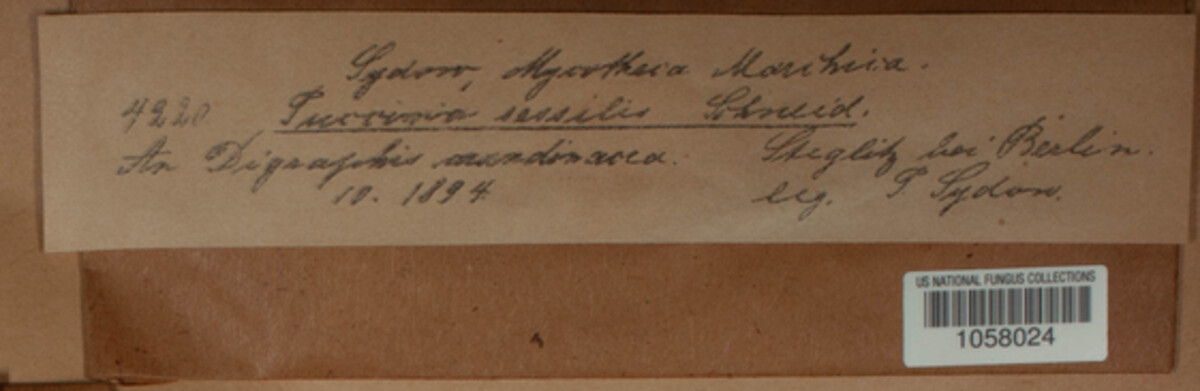 Sydow, Mycotheca Marchica.
4220 Puccinia sessilis Schneid.
An Digraphis arundinacea. Steglitz bei Berlin.
10. 1894 leg. P. Sydow.
US NATIONAL FUNGUS COLLECTIONS
1058024